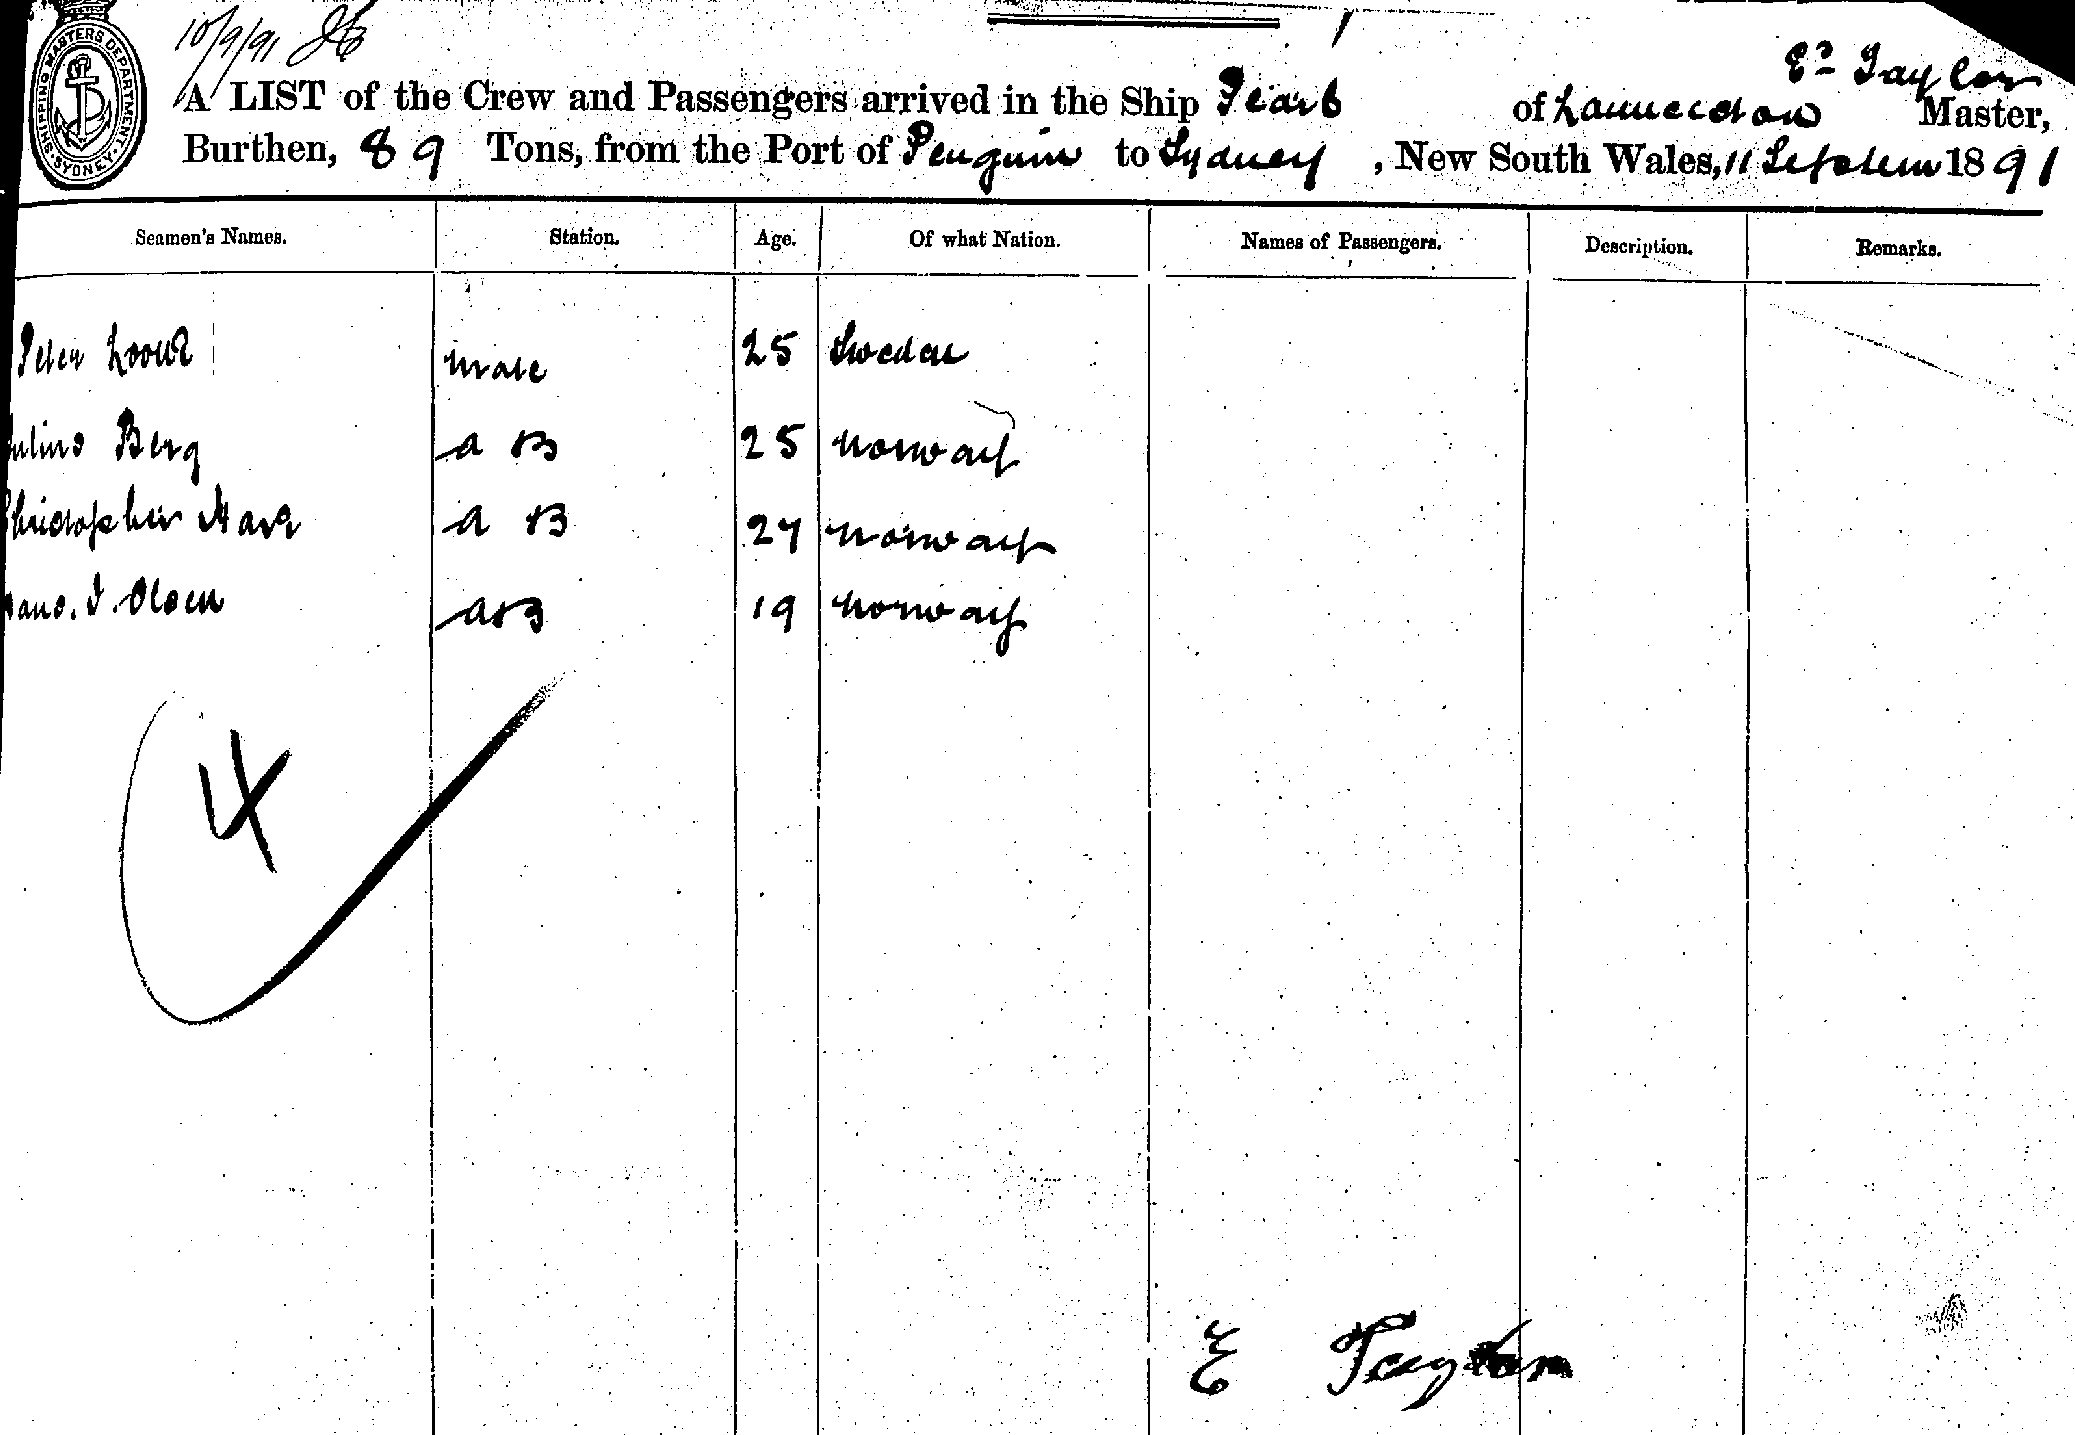 SHIPPING MASTERS DEPARTMENT. SYDNEY.
10/9/91
Ed Taylor
A LIST of the Crew and Passengers arrived in the Ship Pearl of Launceston Master,
Burthen, 89 Tons, from the Port of Penguin to Sydney, New South Wales, 11 September 1891
Seamen's Names. Station. Age. Of what Nation. Names of Passengers. Description. Remarks.
Peter Mate 25 Sweden
ulius Berg A B 25 Norway
Christopher A B 27 Norway
Hans. J. Olsen AB 19 Norway
4
E Taylor